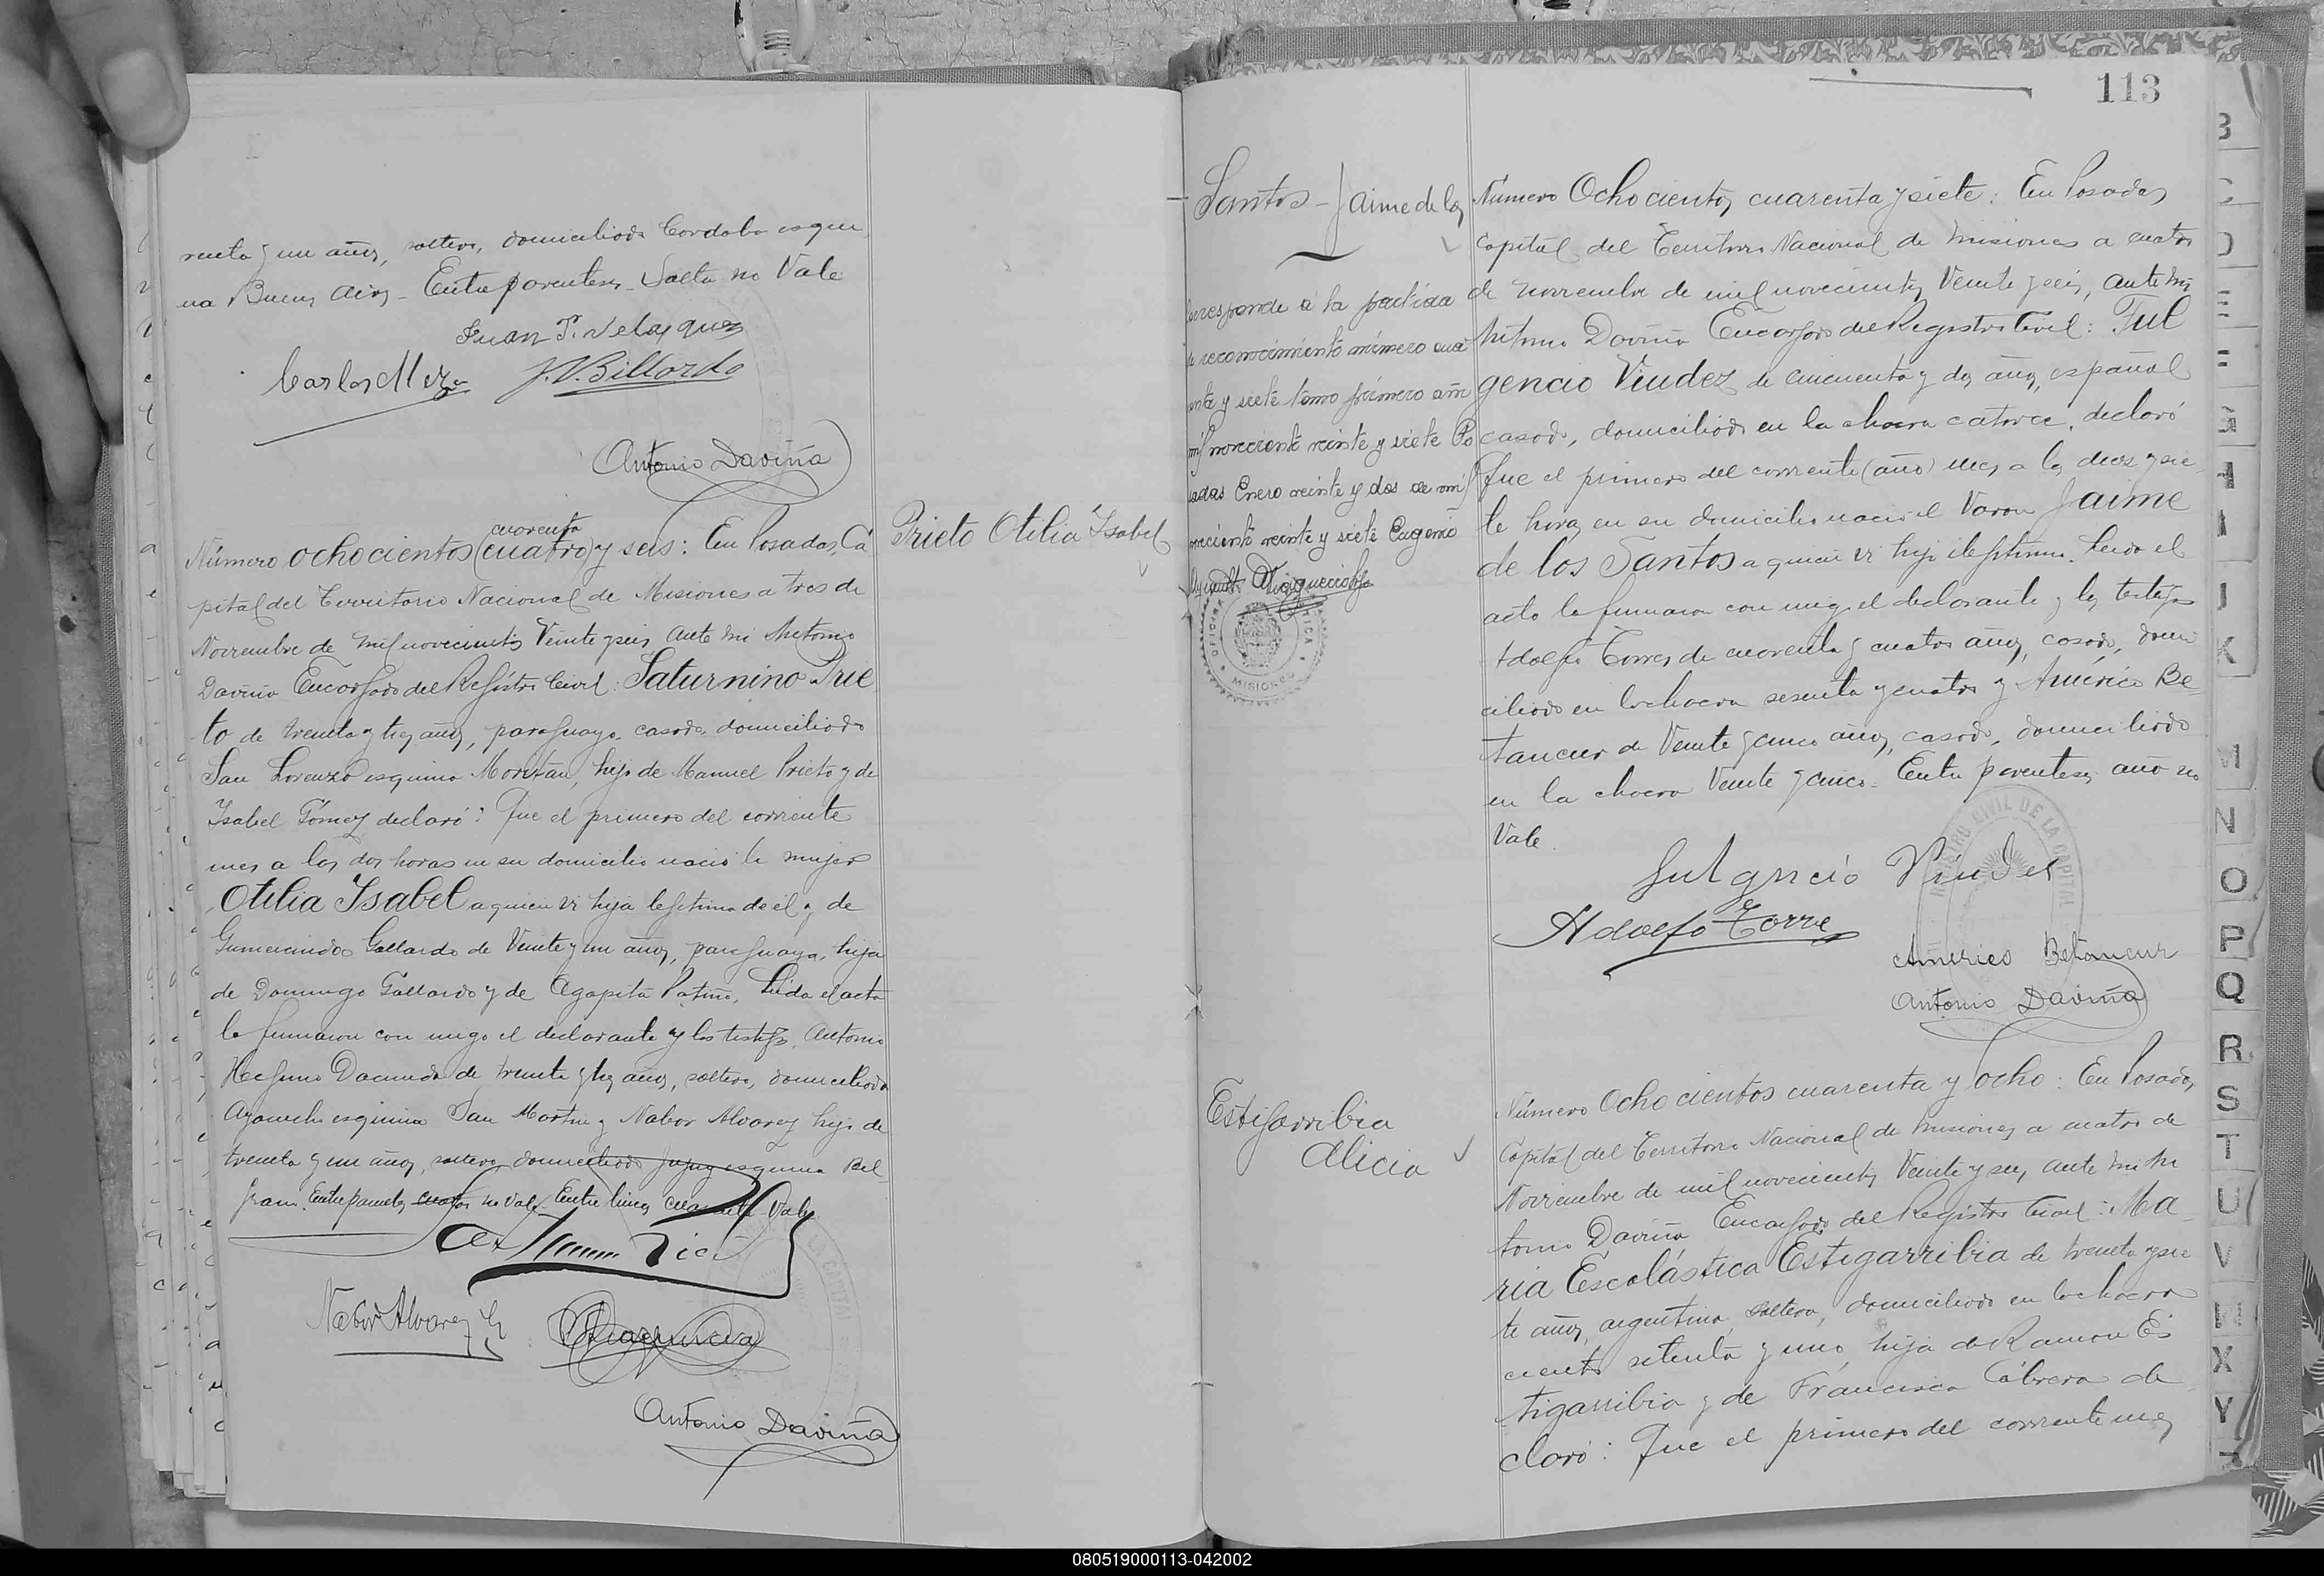 renta y un años, soltero, domiciliado Cordoba esqui
na Buenos Aires - Entre parentesis - Salta no Vale
Juan P. Velazquez
Carlos Meza J.V. Billordo
Antonio Daviña
cuarenta
Número ochocientos (cuatro) y seis: En Posadas, Ca
pital del Territorio Nacional de Misiones a tres de
Noviembre de mil novecientos Veinte y seis, ante mi Antonio
Daviña Encargado del Registro Civil: Saturnino Prie
to de treinta y tres años, paraguayo, casado, domiciliado
San Lorenzo esquina Moritan, hijo de Manuel Prieto y de
Isabel Gómez declaró: Que el primero del corriente
mes a las dos horas en su domicilio nació la mujer
Otilia Isabel a quien vi hija legitima de él y de
Gumercinda Gallardo de Veinte y un años, paraguaya, hija
de Domingo Gallardo y de Agapita Patiño. Leida el acta
la firmaron con migo el declarante y los testigos, Antonio
de treinta y tres años, soltero, domiciliado
Ayacucho esquina San Martin y Nabor Alvarez hijo de
treinta y un años, soltero, domiciliado Jujuy esquina Bel
grano. Entre parentesis cuatro no Vale. Entre lineas cuarenta Vale.
Nabor Alvarez h
Antonio Daviña
Prieto Otilia Isabel
113
Santos - Jaime de los
Corresponde a la partida
de reconocimiento número cua
renta y siete tomo primero año
mil novecientos veinte y siete Po
sadas Enero veinte y dos de mil
novecientos veinte y siete Eugenio
MISIONES
Número Ochocientos cuarenta y siete: En Posadas
Capital del Territorio Nacional de Misiones a cuatro
de noviembre de mil novecientos Veinte y seis, ante mi
Antonio Daviña Encargado del Registro Civil: Ful
gencio Viudez de cincuenta y dos años, español
casado, domiciliado en la chacra catorce, declaró
Que el primero del corriente (año) mes a las diez y sie
te horas en su domicilio nació el Varon Jaime
de los Santos a quien vi hijo ilegítimo. Leida el
acta la firmaron con migo el declarante y los testigos
Adolfo Torres de cuarenta y cuatro años, casado, domi
ciliado en la chacra sesenta y cuatro y Américo Be
tancur de Veinte y cinco años, casado, domiciliado
en la chacra Veinte y cinco - Entre parentesis año no
Vale.
REGISTRO CIVIL DE LA CAPITAL
Fulgencio Viudez
Adolfo Torre
Americo Betancur
Antonio Daviña
Estigarribia
Alicia
Número Ochocientos cuarenta y ocho: En Posadas,
Capital del Territorio Nacional de Misiones a cuatro de
Noviembre de mil novecientos Veinte y seis, ante mi An
tonio Daviña Encargado del Registro Civil: Ma
ria Escolástica Estigarribia de treinta y sie
te años, argentina, soltera, domiciliada en la chacra
ciento setenta y uno, hija de Ramon Es
tigarribia y de Francisca Cabrera de
claró: Que el primero del corriente mes
B
C
D
E
F
G
H
I
J
K
M
N
O
P
Q
R
S
T
U
V
W
X
Y
Z
080519000113-042002